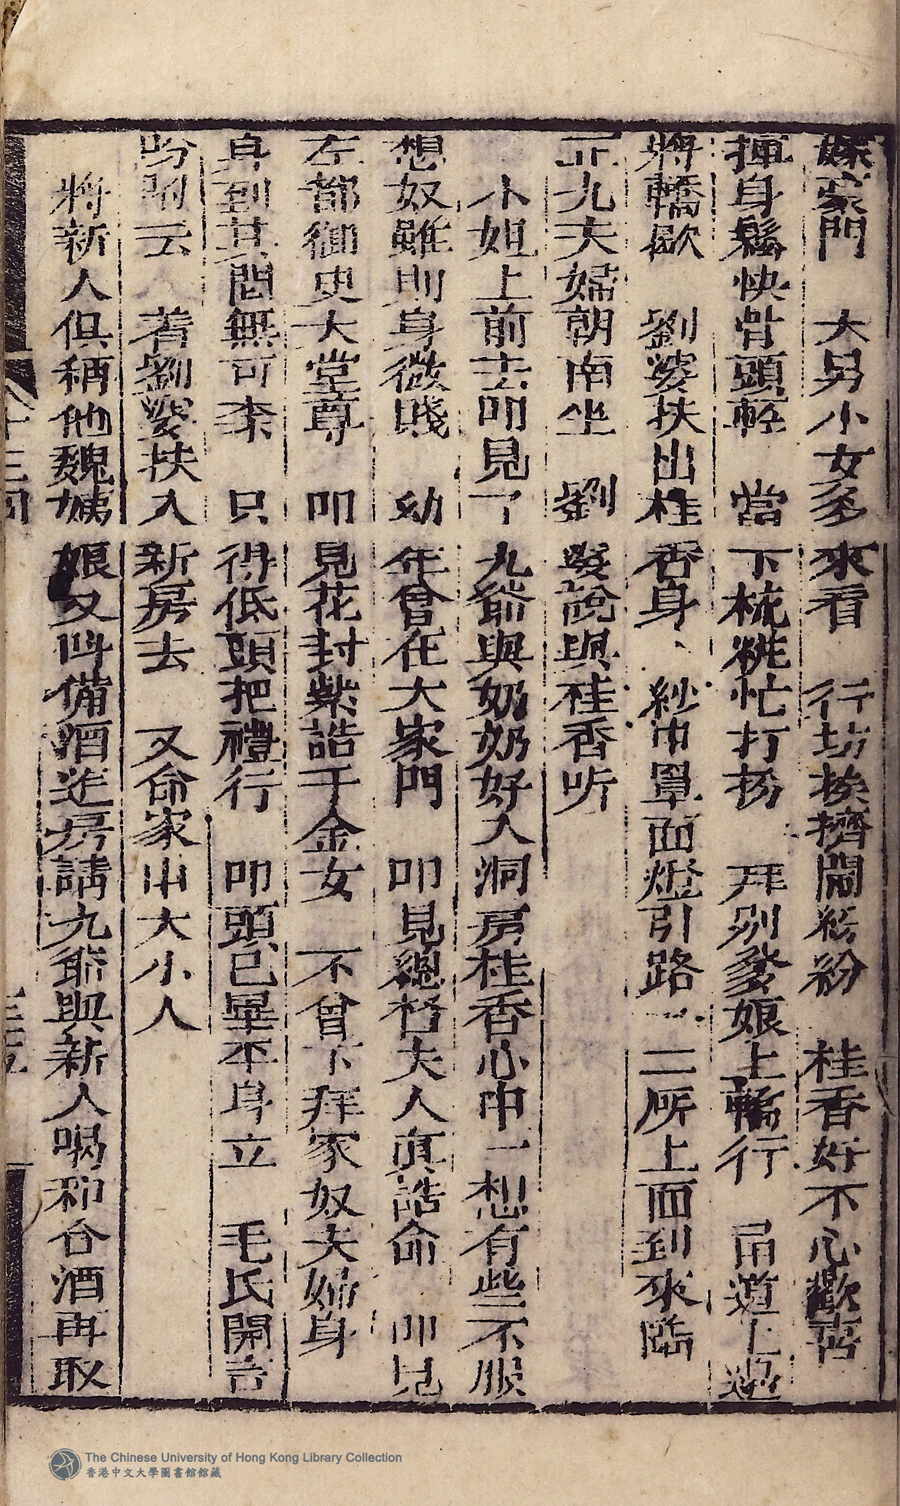 嫁豪門　大男小女多來看　行坊挨擠鬧紛紛　桂香好不心歡喜
揮身鬆快骨頭輕　當下梳粧忙打扮　拜别爹娘上轎行　甬道上過
將轎歇　劉婆扶出桂香身、紗巾罩面燈引路　二所上面到來臨
正九夫婦朝南坐　劉婆說與桂香听
小姐上前去叩見了九爺與奶奶好入洞房桂香心中一想有些不服
想奴雖則身微賤　幼年曾在大家門　叩見總督夫人真誥命　叩見
左都御史大堂尊　叩見花封紫誥千金女　不曾下拜家奴夫婦身
身到其間無可奈　只得低頭把禮行　叩頭已畢平身立　毛氏開言
吩咐云　着劉婆扶入新房去　又命家中大小人
將新人俱稱他魏姨娘又呌備酒送房請九爺與新人喝和合酒再取
十三回
三五
The Chinese University of Hong Kong Library Collection
香港中文大學圖書館館藏